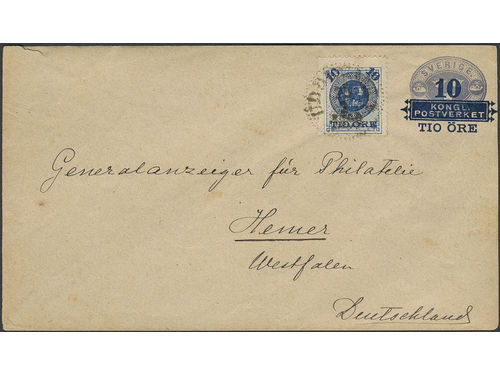 SVERIGE.
10
KONGL.
POSTVERKET
TIO ÖRE
10 10
TIO ÖRE
Generalanzeiger für Philatelie
Hemer
Westfalen
Deutschland